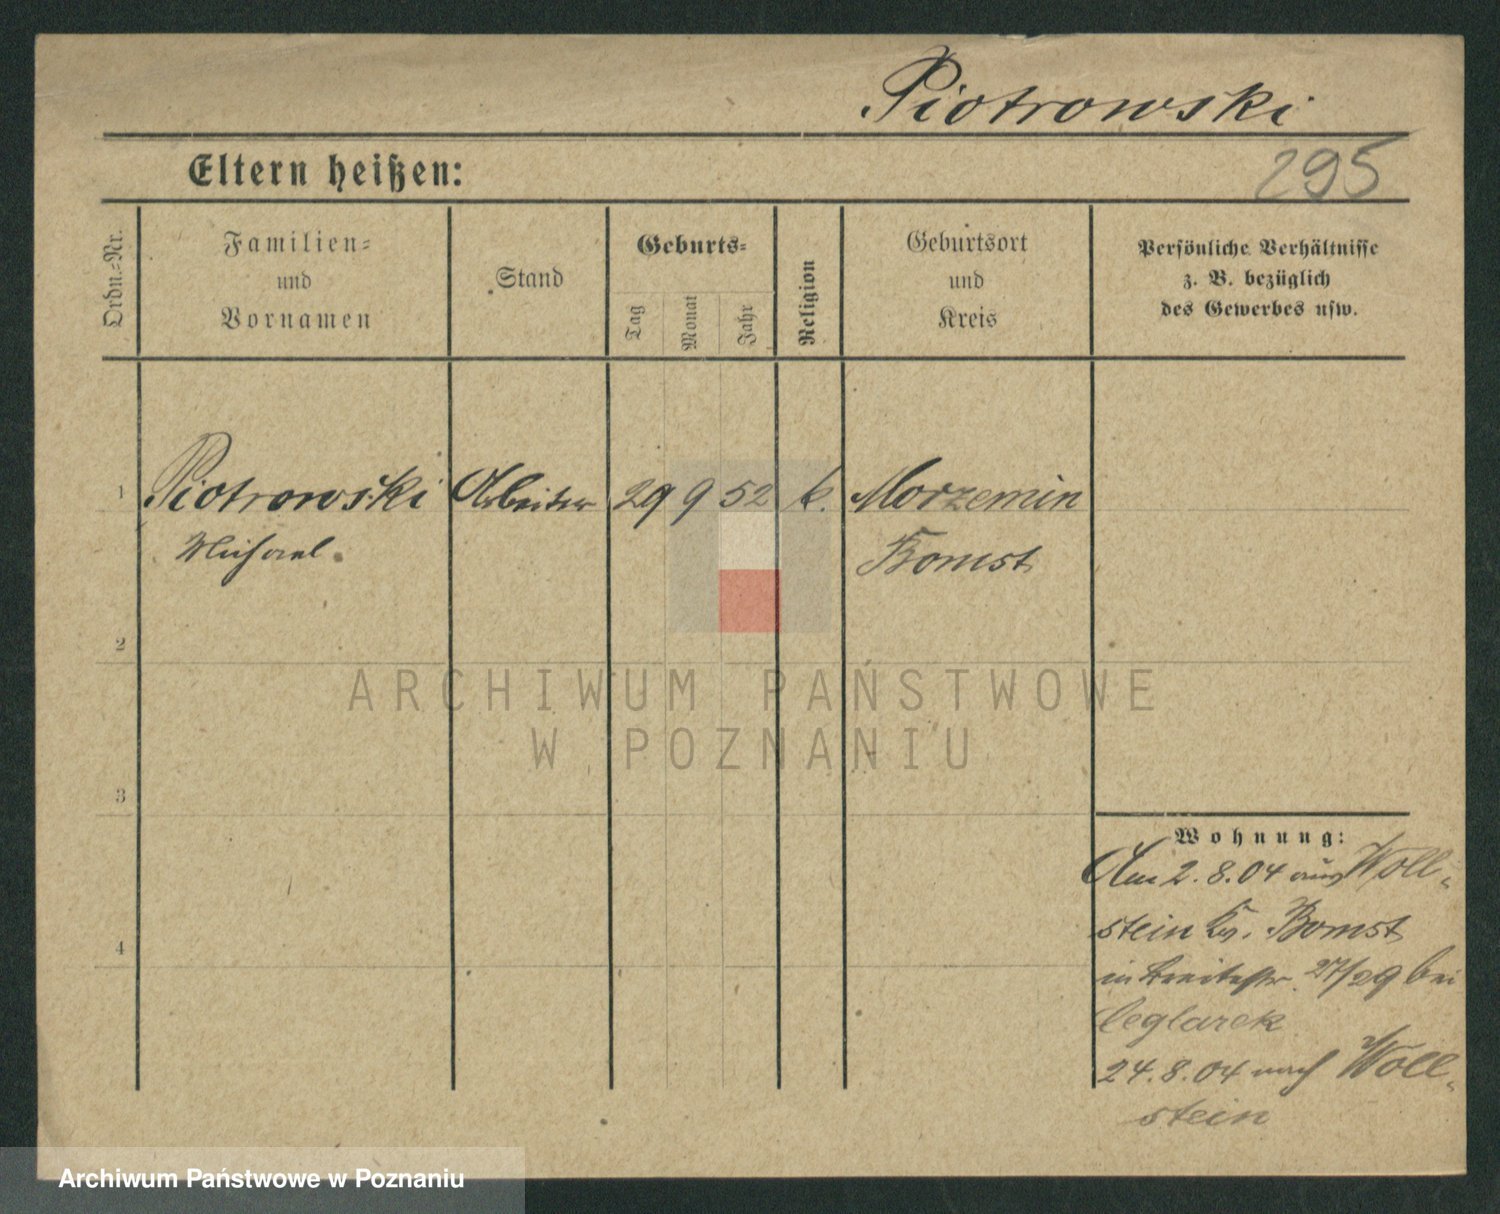 Piotrowski
Eltern heißen:
295
Ordn.-Nr.
Familien-
und
Vornamen
Stand
Geburts-
Tag
Monat
Jahr
Religion
Geburtsort
und
Kreis
Persönliche Verhältnisse
z. B. bezüglich
des Gewerbes usw.
1 Piotrowski Arbeiter 29 9 52 k. Morzemin
Michael Bomst
2
ARCHIWUM PAŃSTWOWE
W POZNANIU
3
Wohnung:
Am 2.8.04 aus Woll-
stein Kr. Bomst
4
in Breitestr. 27/29 bei
Ceglarek
24.8.04 nach Woll-
stein
Archiwum Państwowe w Poznaniu